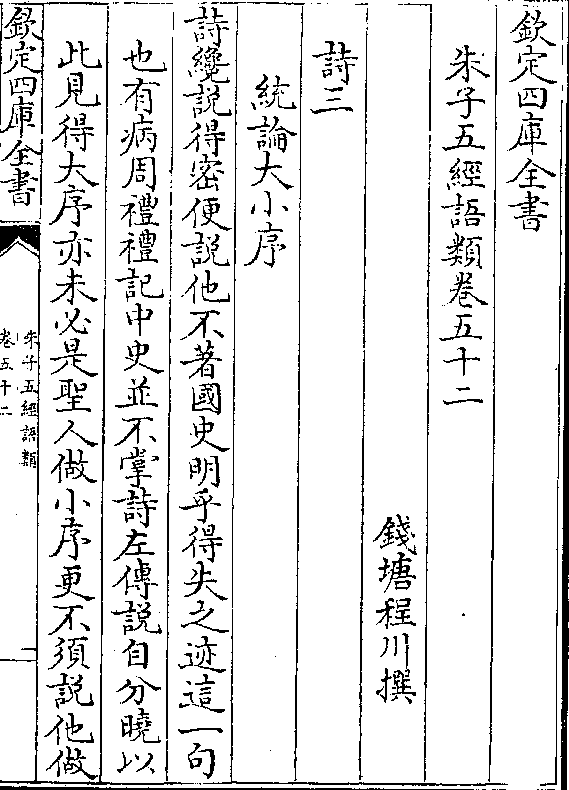 欽定四庫全書
朱子五經語類卷五十二
錢塘程川撰
詩三
統論大小序
詩纔説得密便説他不著國史明乎得失之迹這一句
也有病周禮禮記中史並不掌詩左傳説自分曉以
此見得大序亦未必是聖人做小序更不須説他做
欽定四庫全書
朱子五經語類
卷五十二
一